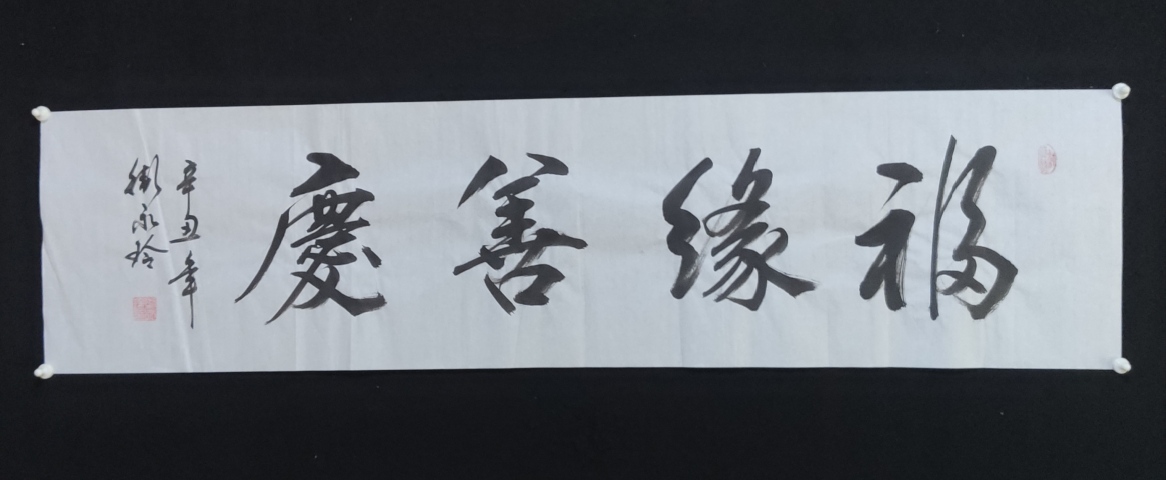 福緣善慶
辛丑年
衛永玲